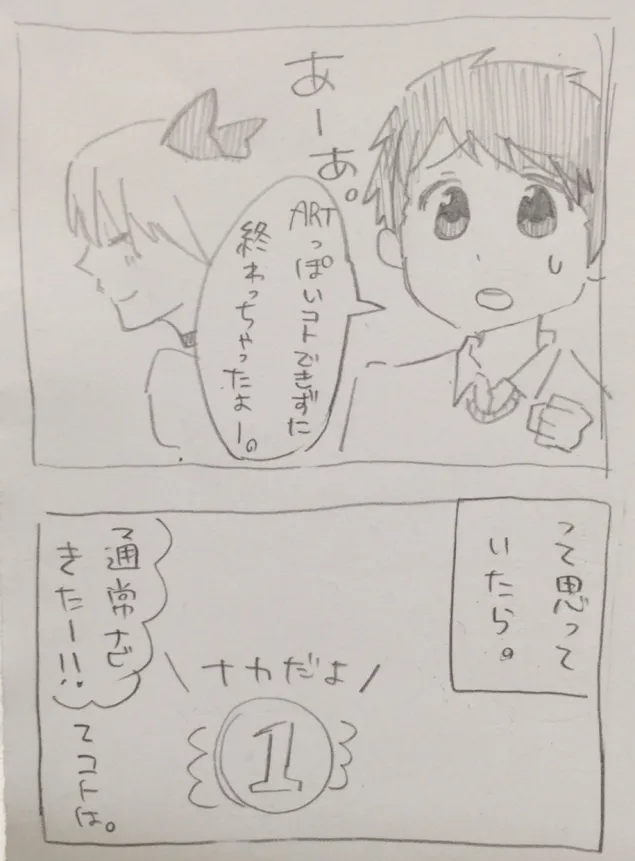 あーあ。
ARTっぽいコトできずた
終わっちゃったよー。
って思って
いたら。
ナカだよ
1
通常ナビ
きたー!!
てコトは。